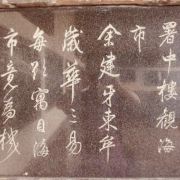 署中樓觀海
市
余建牙東牟
歲華三易
每於寓目海
市竟為機